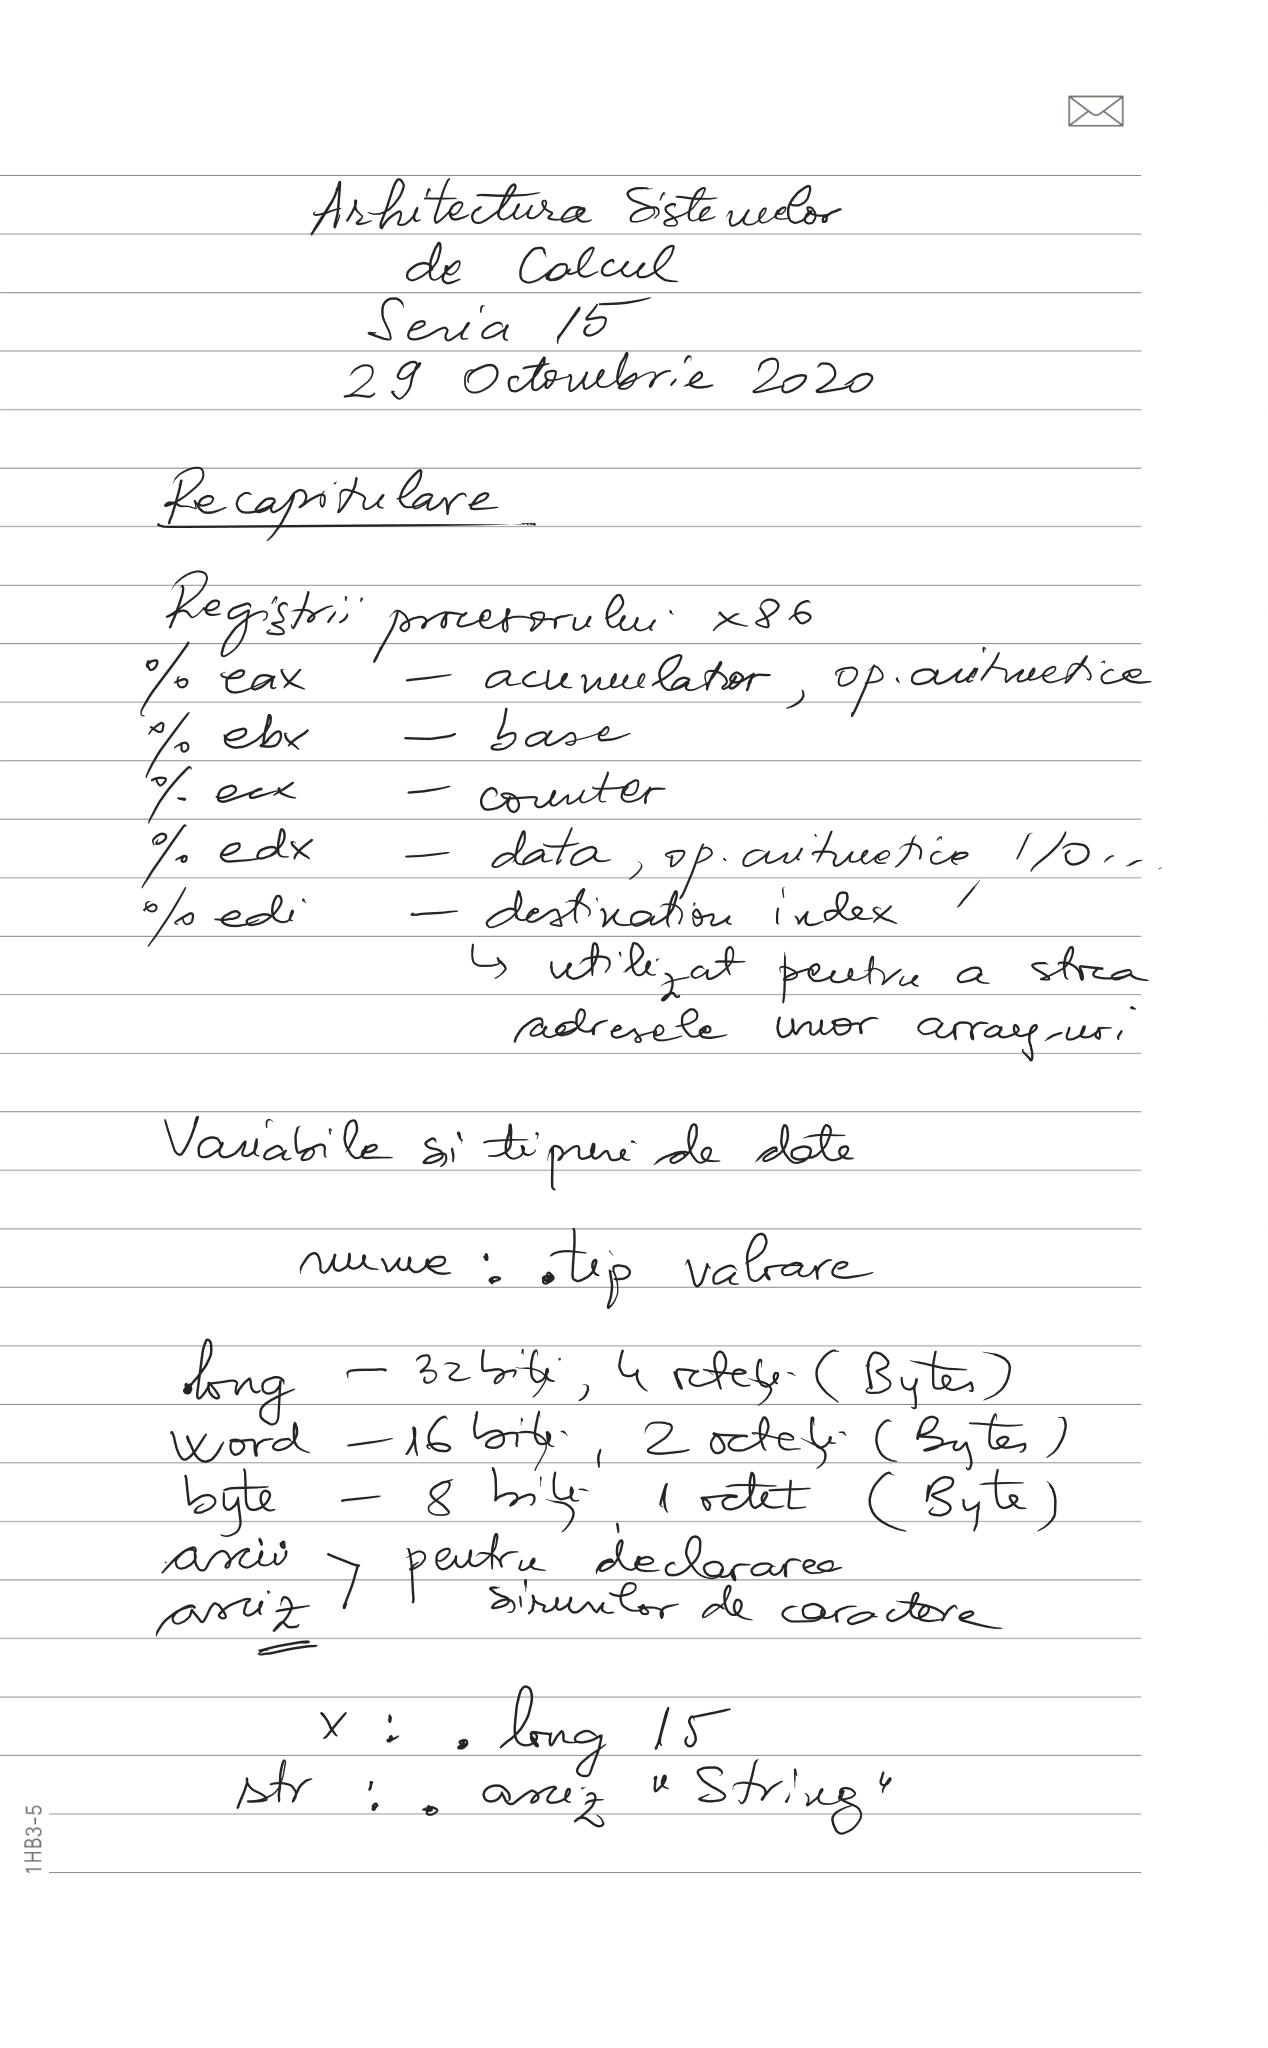 Arhitectura Sistemelor
de Calcul
Seria 15
29 Octombrie 2020
Recapitulare
Regiștrii procesorului x86
% eax — acumulator, op. aritmetice
% ebx — base
% ecx — counter
% edx — data, op. aritmetice, I/O...
% edi — destination index
↳ utilizat pentru a stoca
adresele unor array-uri
Variabile si tipuri de date
nume : .tip valoare
.long — 32 biți, 4 octeți (Bytes)
word — 16 biți, 2 octeți (Bytes)
byte — 8 biți, 1 octet (Byte)
ascii > pentru declararea
asciz sirurilor de caractere
x : . long 15
str : . asciz "String"
1HB3-5